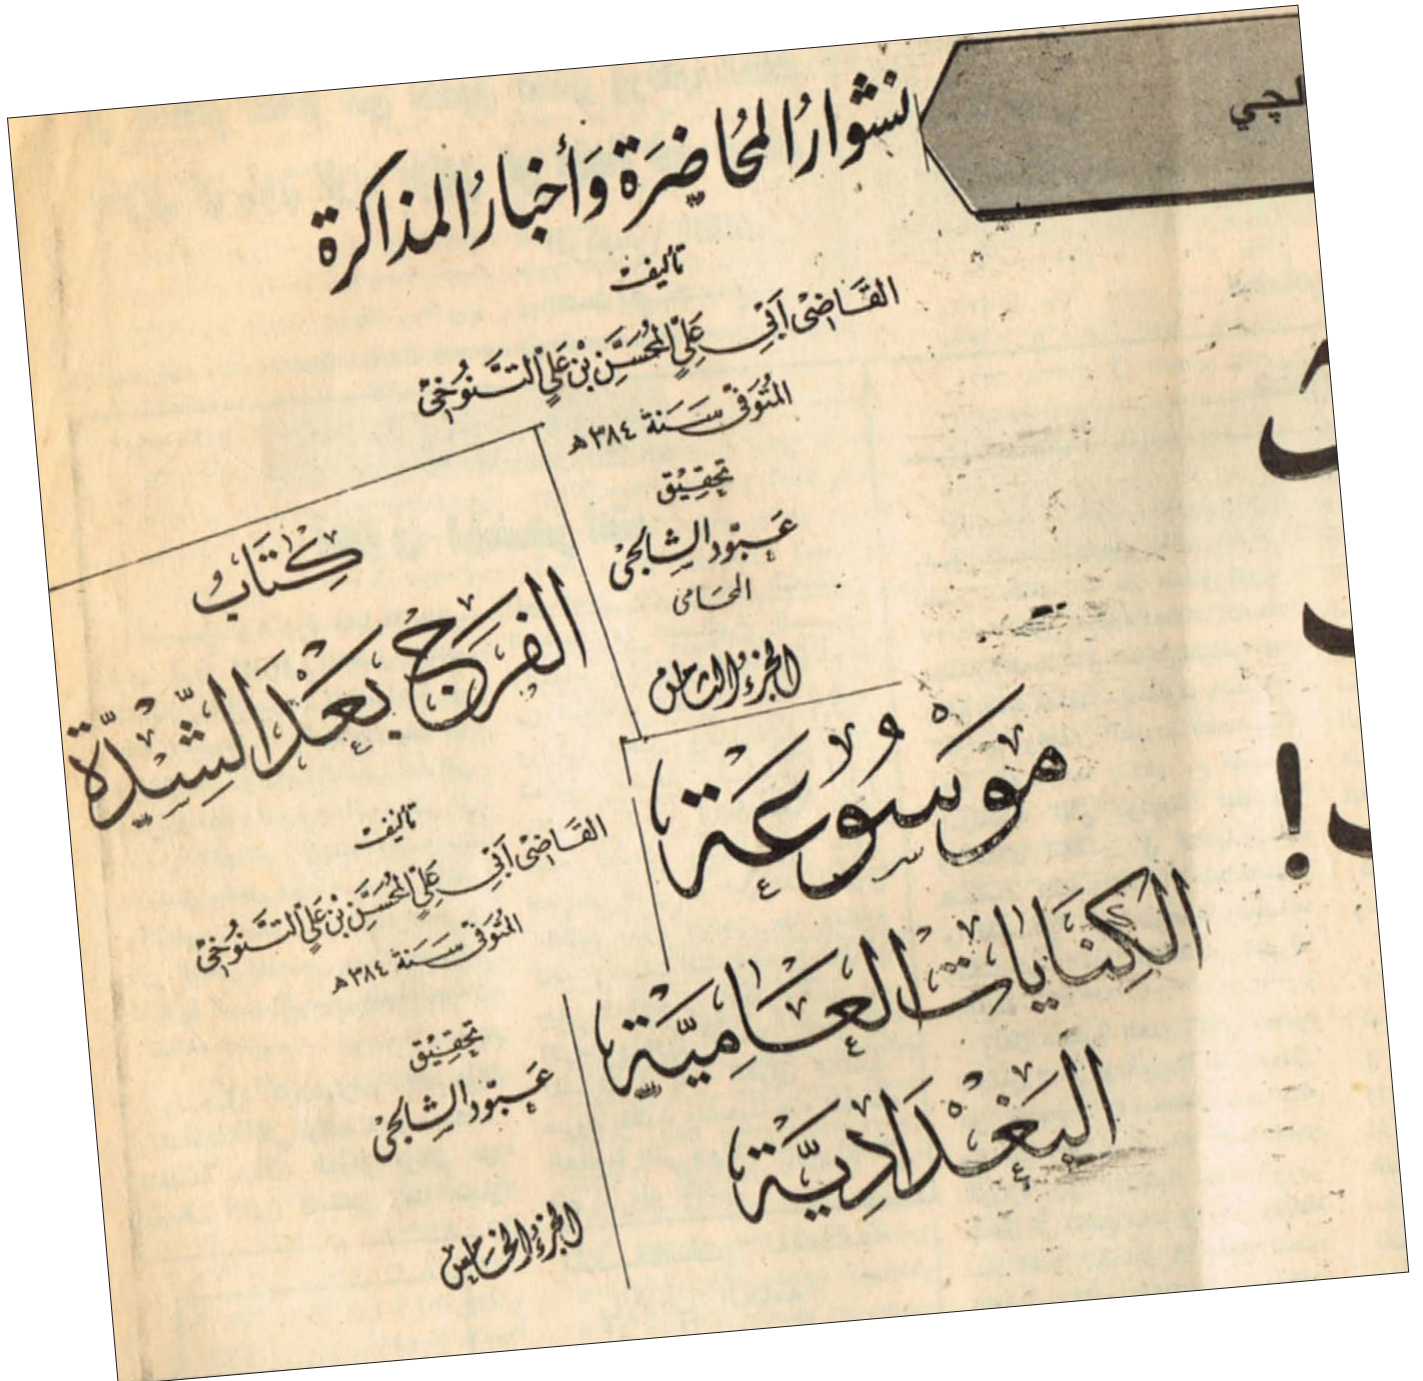 نشوارُ المُحَاضرَة وَأخبارُ المذاكرة
تأليف
القَاضي أَبي عَلي المُحَسِّن بْن عَلي التَّنوُخي
المُتَوَفى سَنَة ٣٨٤ هـ
تحقيْق
عَبّود الشالجي
المحَامي
الجزءُ الثامن
كتَابُ
الفَرَج بَعْدَ الشِّدَّة
تأليف
القَاضي أَبي عَلي المُحَسِّن بْن عَلي التَّنوُخي
المُتَوَفى سَنَة ٣٨٤ هـ
تحقيْق
عَبّود الشالجي
الجزءُ الخامِس
موْسَوُعَة
الكِنايات العَامِيَّة
البَغْدَادِيَّة
لچي
!